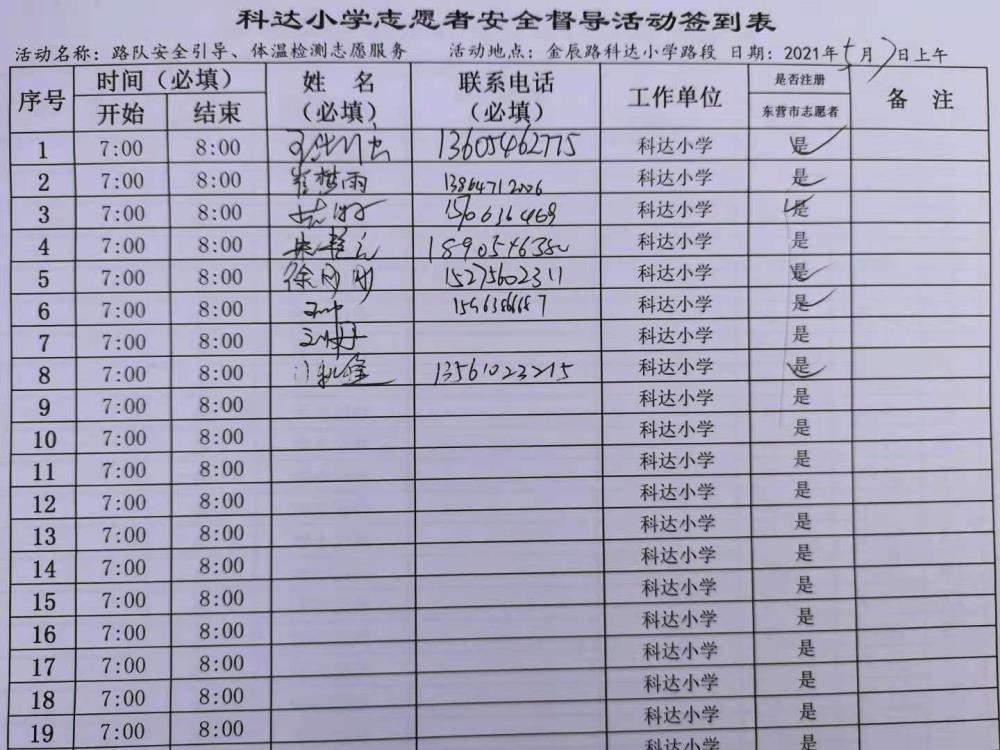 科达小学志愿者安全督导活动签到表
活动名称：路队安全引导、体温检测志愿服务 活动地点：金辰路科达小学路段 日期：2021年5月7日上午
序号 时间（必填） 姓 名（必填） 联系电话（必填） 工作单位 是否注册东营市志愿者 备 注
开始 结束
1 7:00 8:00 13605462775 科达小学 是
2 7:00 8:00 崔梦雨 13864712006 科达小学 是
3 7:00 8:00 科达小学 是
4 7:00 8:00 科达小学 是
5 7:00 8:00 徐刚刚 15275602311 科达小学 是
6 7:00 8:00 科达小学 是
7 7:00 8:00 科达小学 是
8 7:00 8:00 13561023215 科达小学 是
9 7:00 8:00 科达小学 是
10 7:00 8:00 科达小学 是
11 7:00 8:00 科达小学 是
12 7:00 8:00 科达小学 是
13 7:00 8:00 科达小学 是
14 7:00 8:00 科达小学 是
15 7:00 8:00 科达小学 是
16 7:00 8:00 科达小学 是
17 7:00 8:00 科达小学 是
18 7:00 8:00 科达小学 是
19 7:00 8:00 科达小学 是
科达小学 是